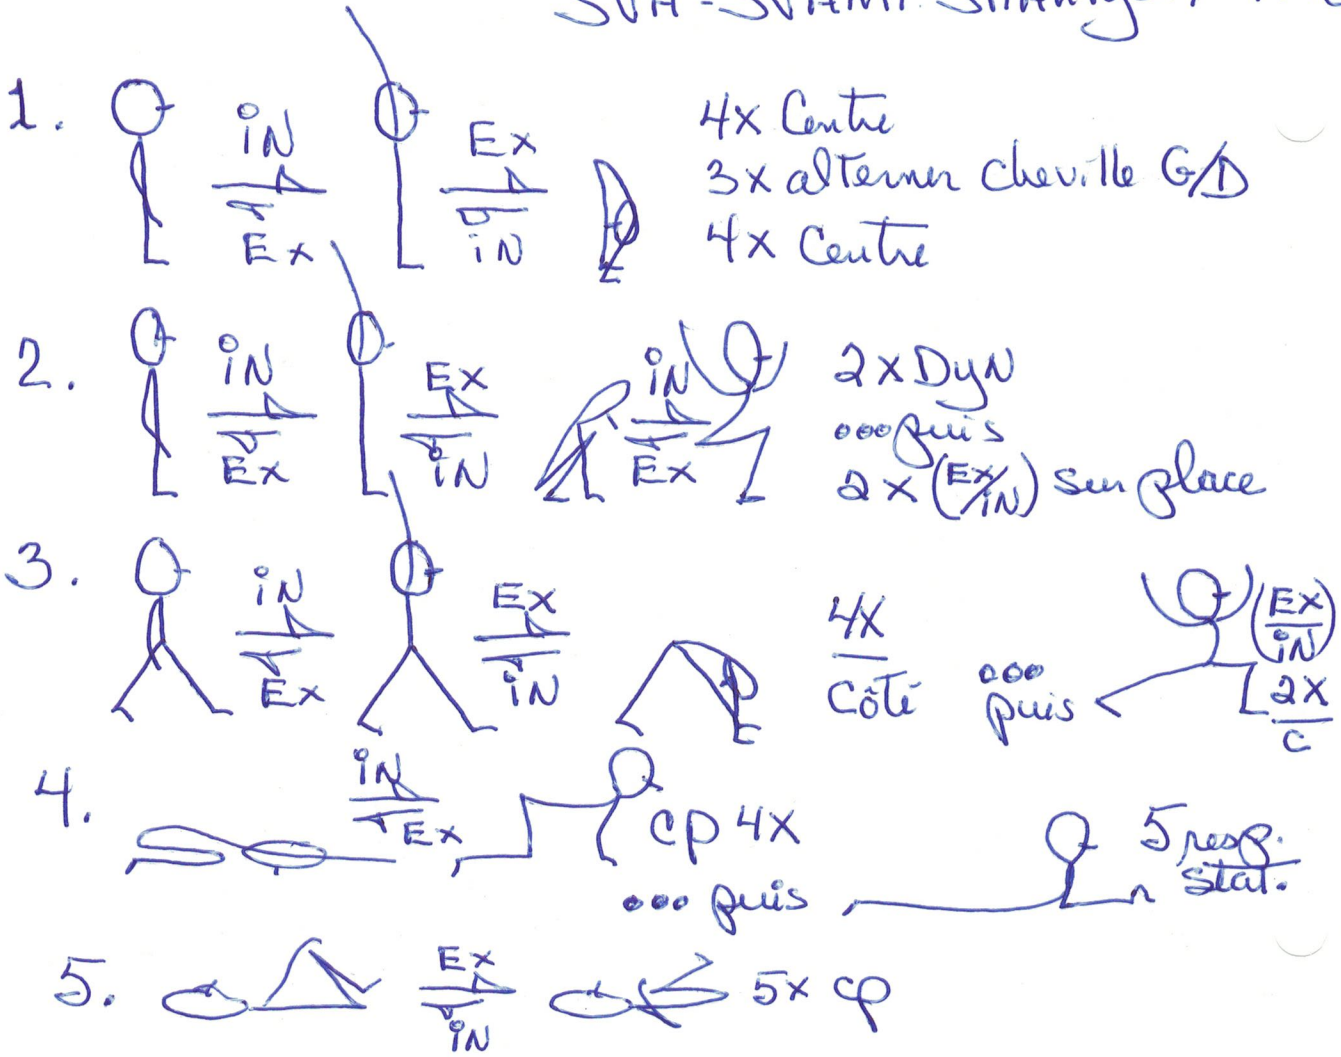 1. iN Ex Ex iN 4x Centre
3x alterner cheville G/D
4x Centre
2. iN Ex Ex iN iN Ex 2x DyN
ooo puis
2x (Ex/iN) sur place
3. iN Ex Ex iN 4X Côté ooo puis (Ex/iN) 2X C
4. iN Ex cp 4x
ooo puis 5 resp. stat.
5. Ex iN 5x cp